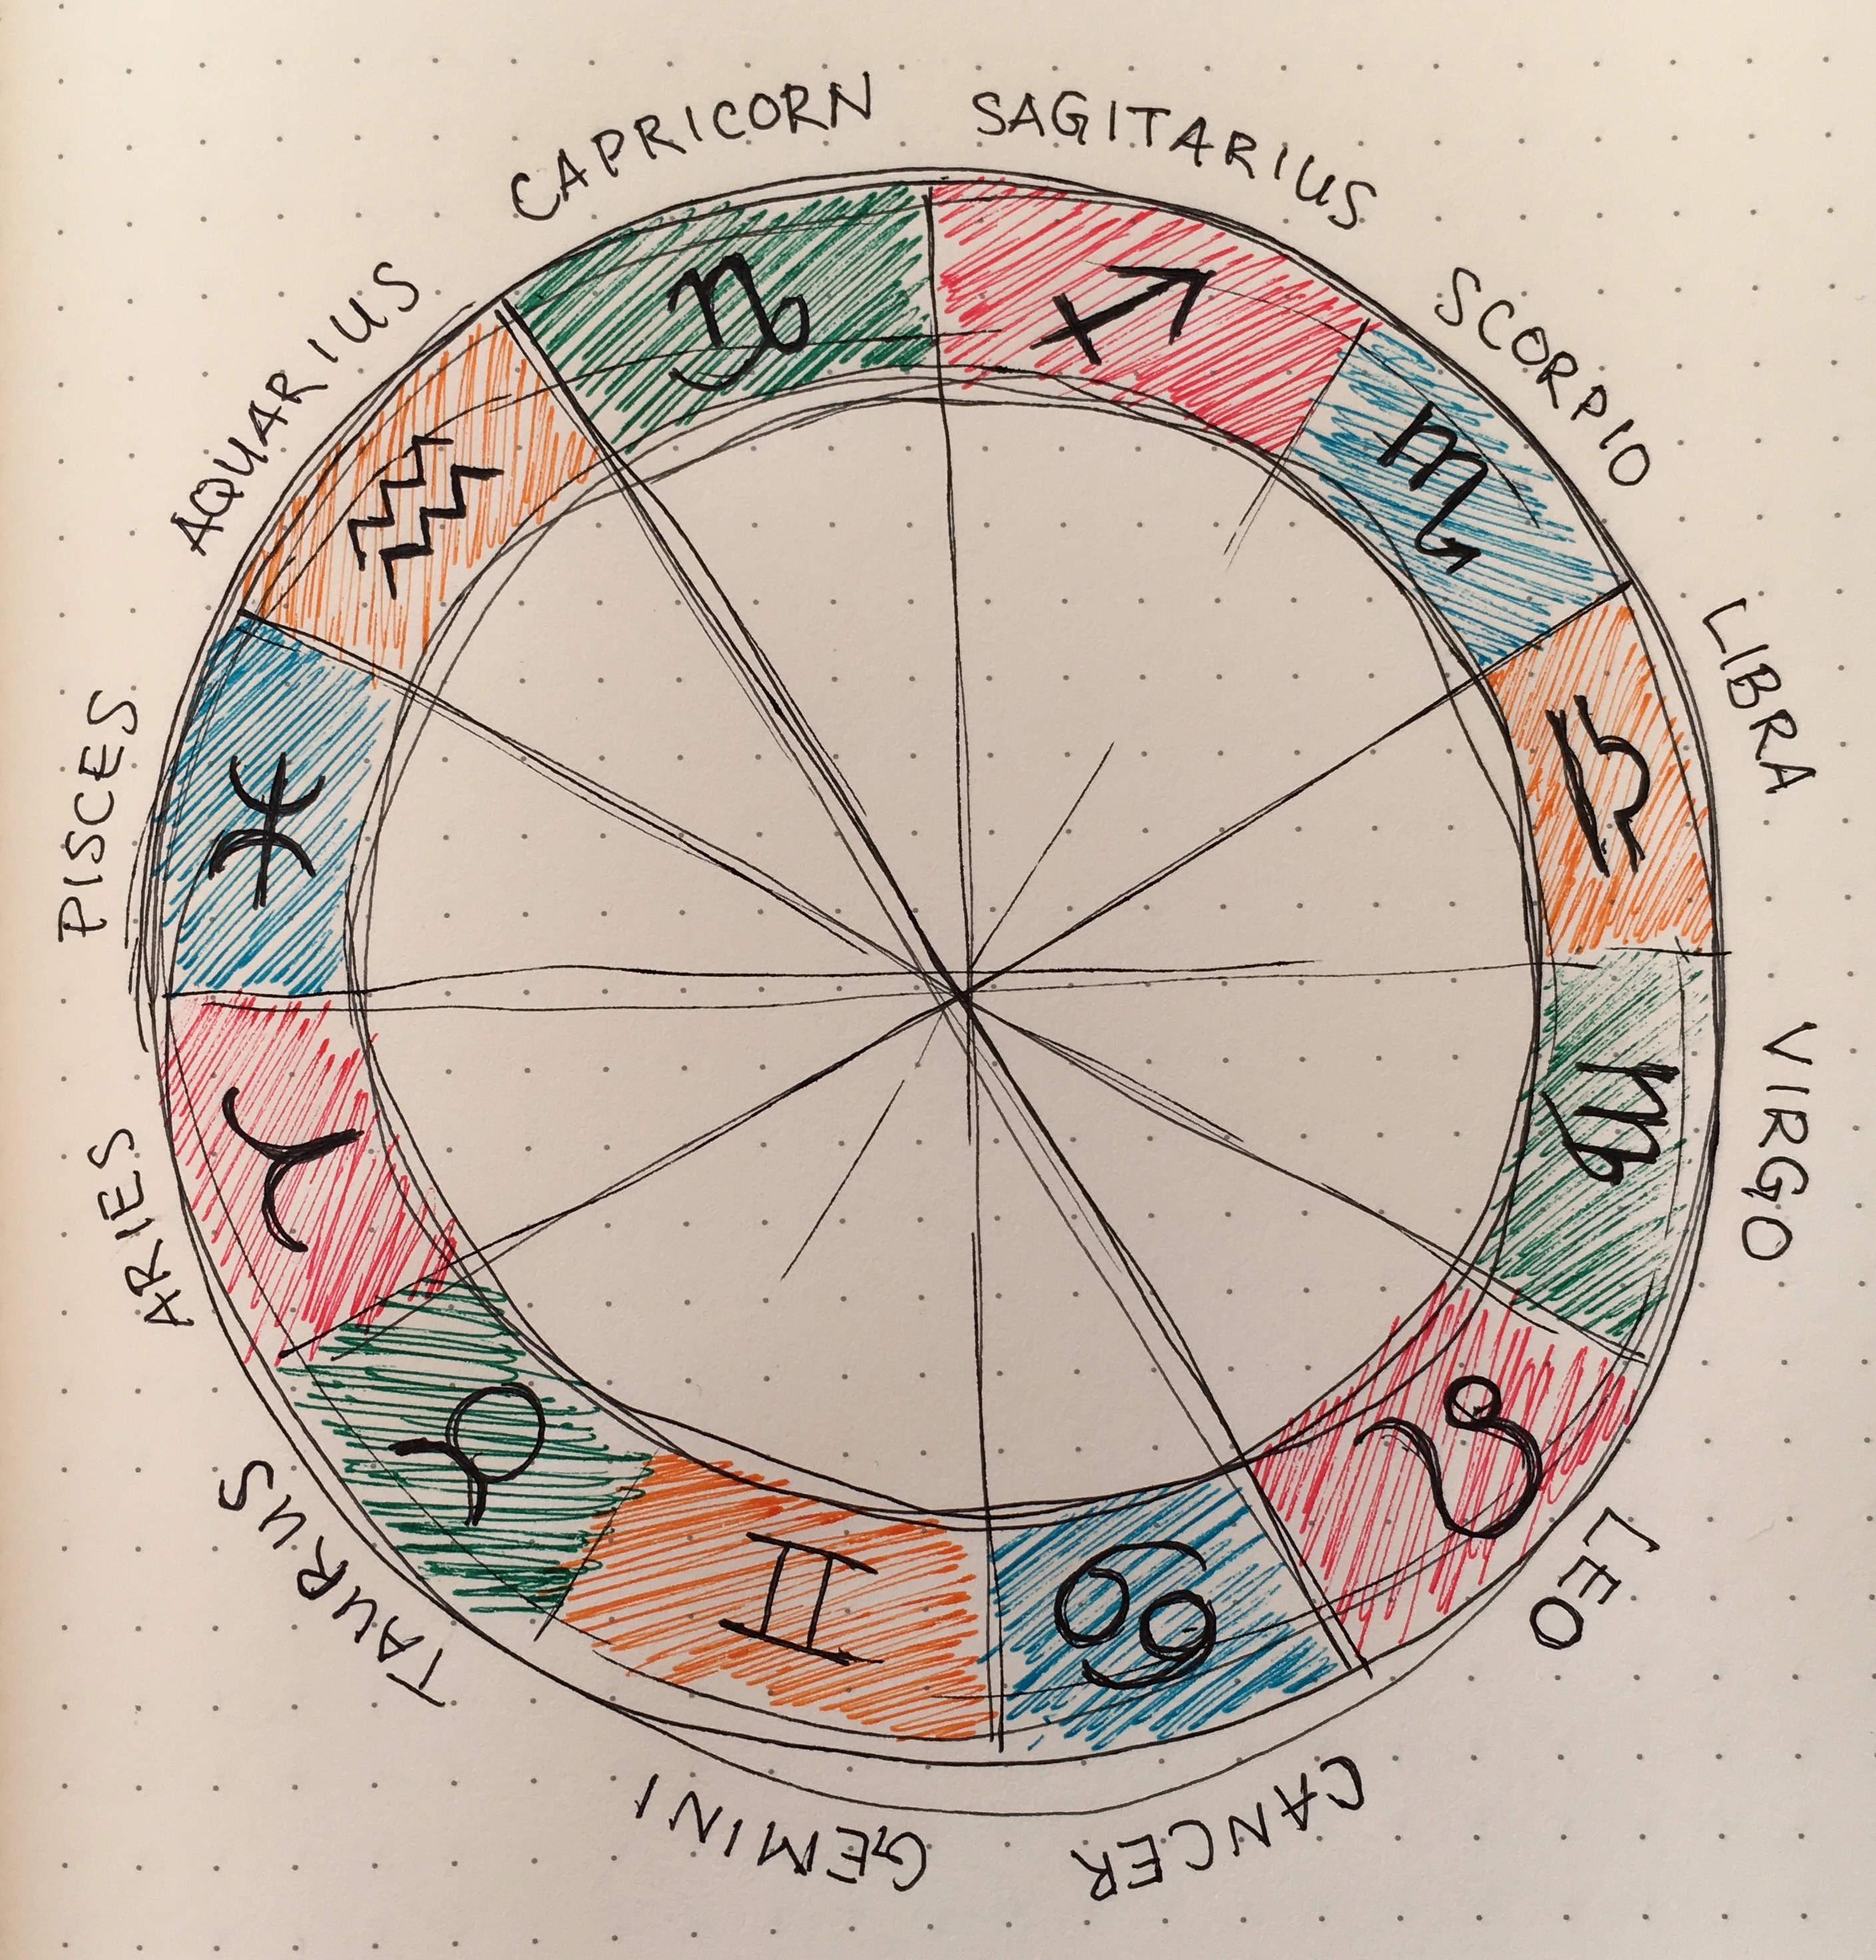 CAPRICORN
SAGITARIUS
SCORPIO
LIBRA
VIRGO
LEO
CANCER
GEMINI
TAURUS
ARIES
PISCES
AQUARIUS
♑
♐
♏
♎
♍
♌
♋
♊
♉
♈
♓
♒